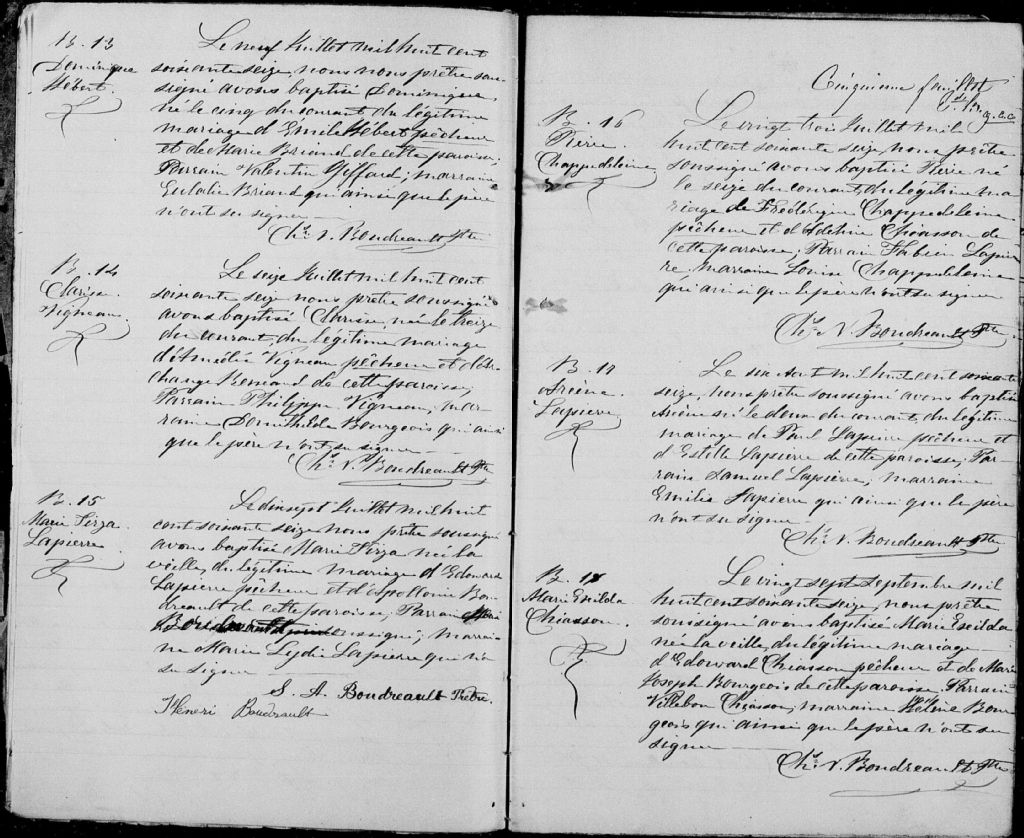 B. 13
Dominique
Hébert.
Le neuf Juillet mil huit cent
soixante seize, nous nous prêtre sous-
signé avons baptisé Dominique,
né le cinq du courant du légitime
mariage d'Emile Hébert pêcheur
et de Marie Briand de cette paroisse;
Parrain Valentin Giffard; marraine
Eulalie Briand qui ainsi que le père
n'ont su signer
Chs. N. Boudreault Ptre
B. 14
Clarisse
Vigneau.
Le seize Juillet mil huit cent
soixante seize nous prêtre soussigné
avons baptisé Clarisse, née le treize
du courant, du légitime mariage
d'Amédée Vigneau pêcheur et d'Es-
change Renaud de cette paroisse;
Parrain Philippe Vigneau, mar-
raine Domithilde Bourgeois qui ainsi
que le père n'ont su signer
Chs. N. Boudreault Ptre
B. 15
Marie Tirza
Lapierre
Le dix sept Juillet mil huit
cent soixante seize nous prêtre soussigné
avons baptisé Marie Tirza née la
veille, du légitime mariage d'Edouard
Lapierre pêcheur et d'Apollonie Bou-
dreault de cette paroisse, Parrain Henri
Boudreault soussigné; marrai-
ne Marie Lydie Lapierre qui n'a
su signer
S. A. Boudreault Prêtre.
Henri Boudrault
Cinquième feuillet
B. 16
Pierre
Chappedeleine
Le vingt trois Juillet mil
huit cent soixante seize, nous prêtre
soussigné avons baptisé Pierre né
le seize du courant, du légitime ma-
riage de Frédérique Chappedeleine
pêcheur et d'Adeline Chiasson de
cette paroisse; Parrain Fabien Lapier-
re, marraine Louise Chappedeleine
qui ainsi que le père n'ont su signer
Chs. N. Boudreault Ptre
B. 17
Arsène
Lapierre
Le six Aout mil huit cent soixante
seize, nous prêtre soussigné avons baptisé
Arsène né le deux du courant, du légitime
mariage de Paul Lapierre pêcheur et
d'Estelle Lapierre de cette paroisse; Par-
rain Samuel Lapierre, marraine
Emilie Lapierre qui ainsi que le père
n'ont su signer
Chs. N. Boudreault Ptre
B. 18
Marie Exilda
Chiasson.
Le vingt sept Septembre mil
huit cent soixante seize, nous prêtre
soussigné avons baptisé Marie Exilda
née la veille, du légitime mariage
d'Edouard Chiasson pêcheur et de Marie
Joseph Bourgeois de cette paroisse, Parrain
Villebon Chiasson, marraine Hélène Bour-
geois qui ainsi que le père n'ont su
signer
Chs. N. Boudreault Ptre